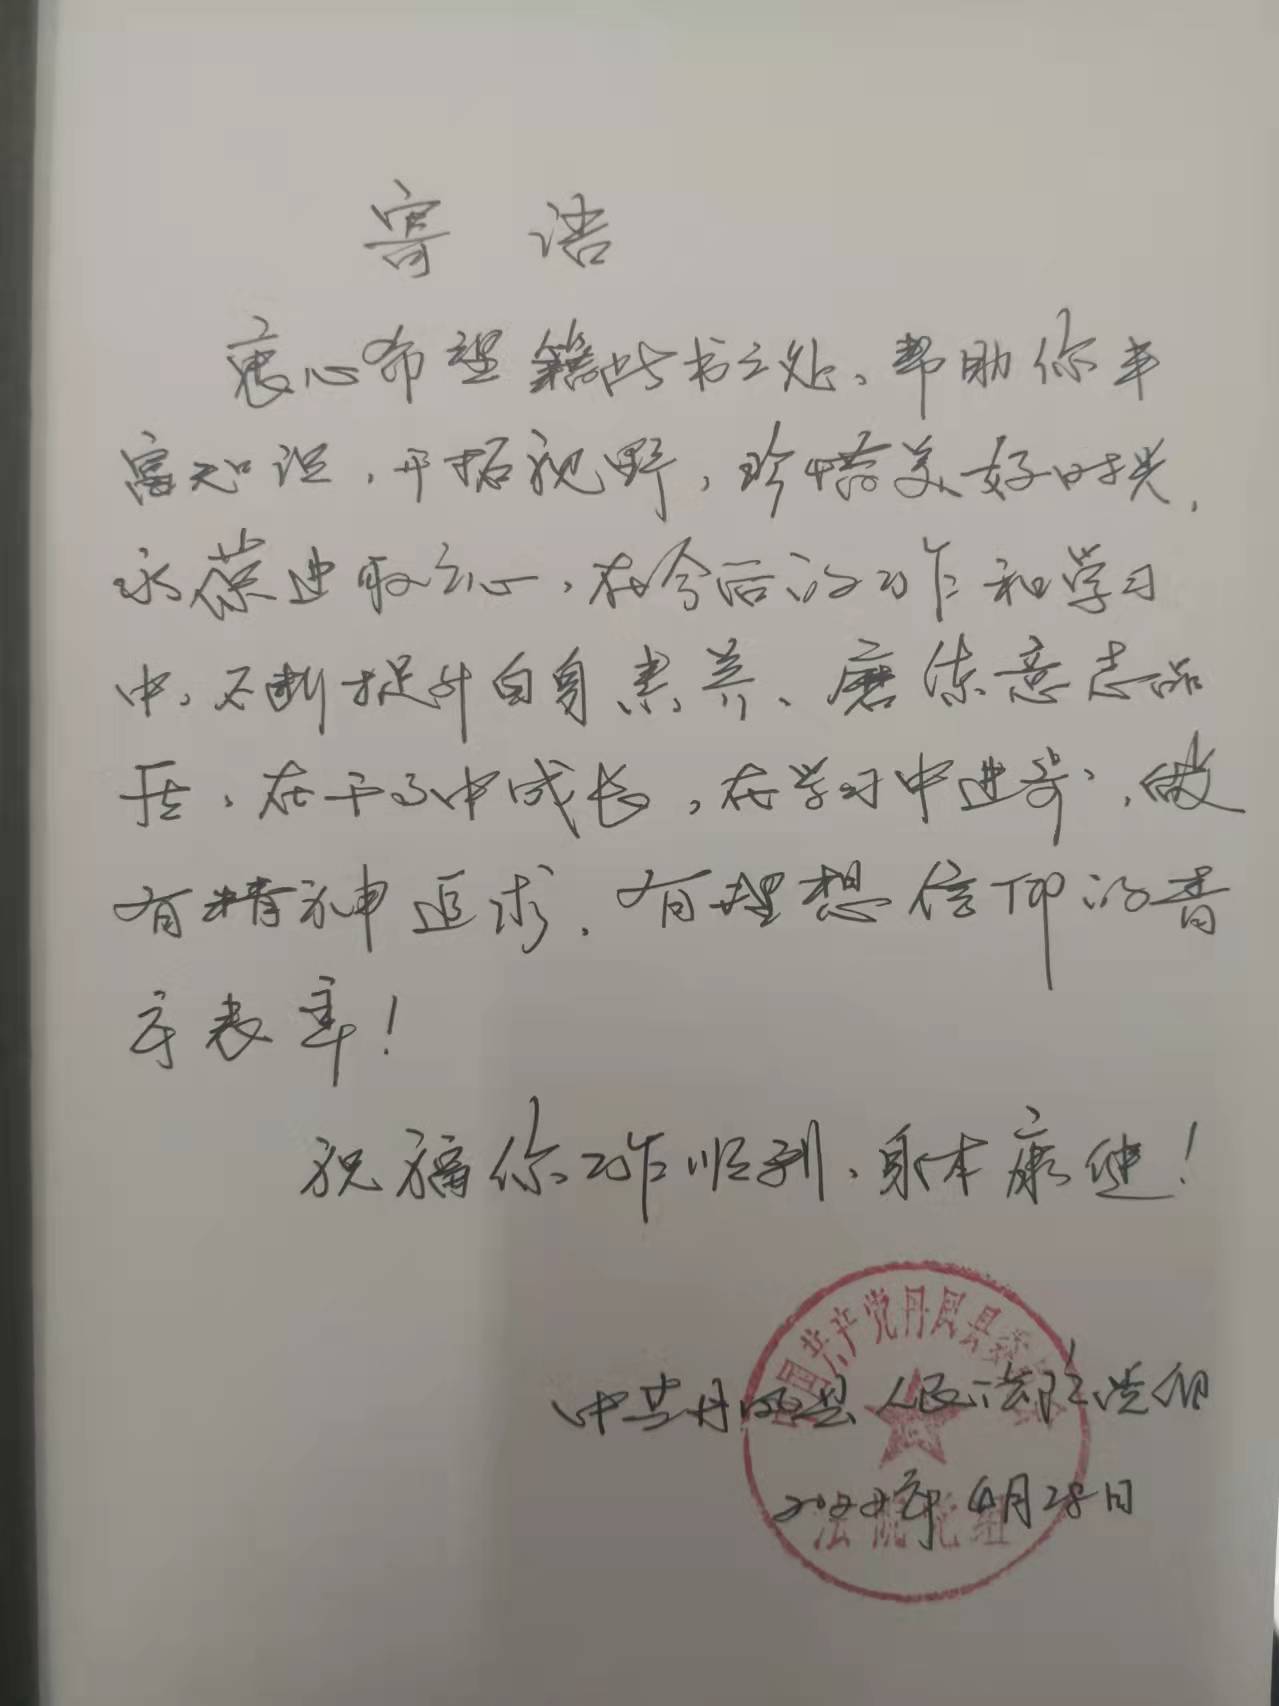 寄语
衷心希望籍此书之处、帮助你丰
富知识，开拓视野，珍惜美好时光，
永葆进取之心，在今后的工作和学习
中，不断提升自身素养、磨练意志品
质，在干事中成长，在学习中进步，做
有精神追求、有理想信仰的青
年表率！
祝福你工作顺利、身体康健！
中国共产党丹凤县委员会
中共丹凤县人民法院党组
2022年4月28日
法院党组